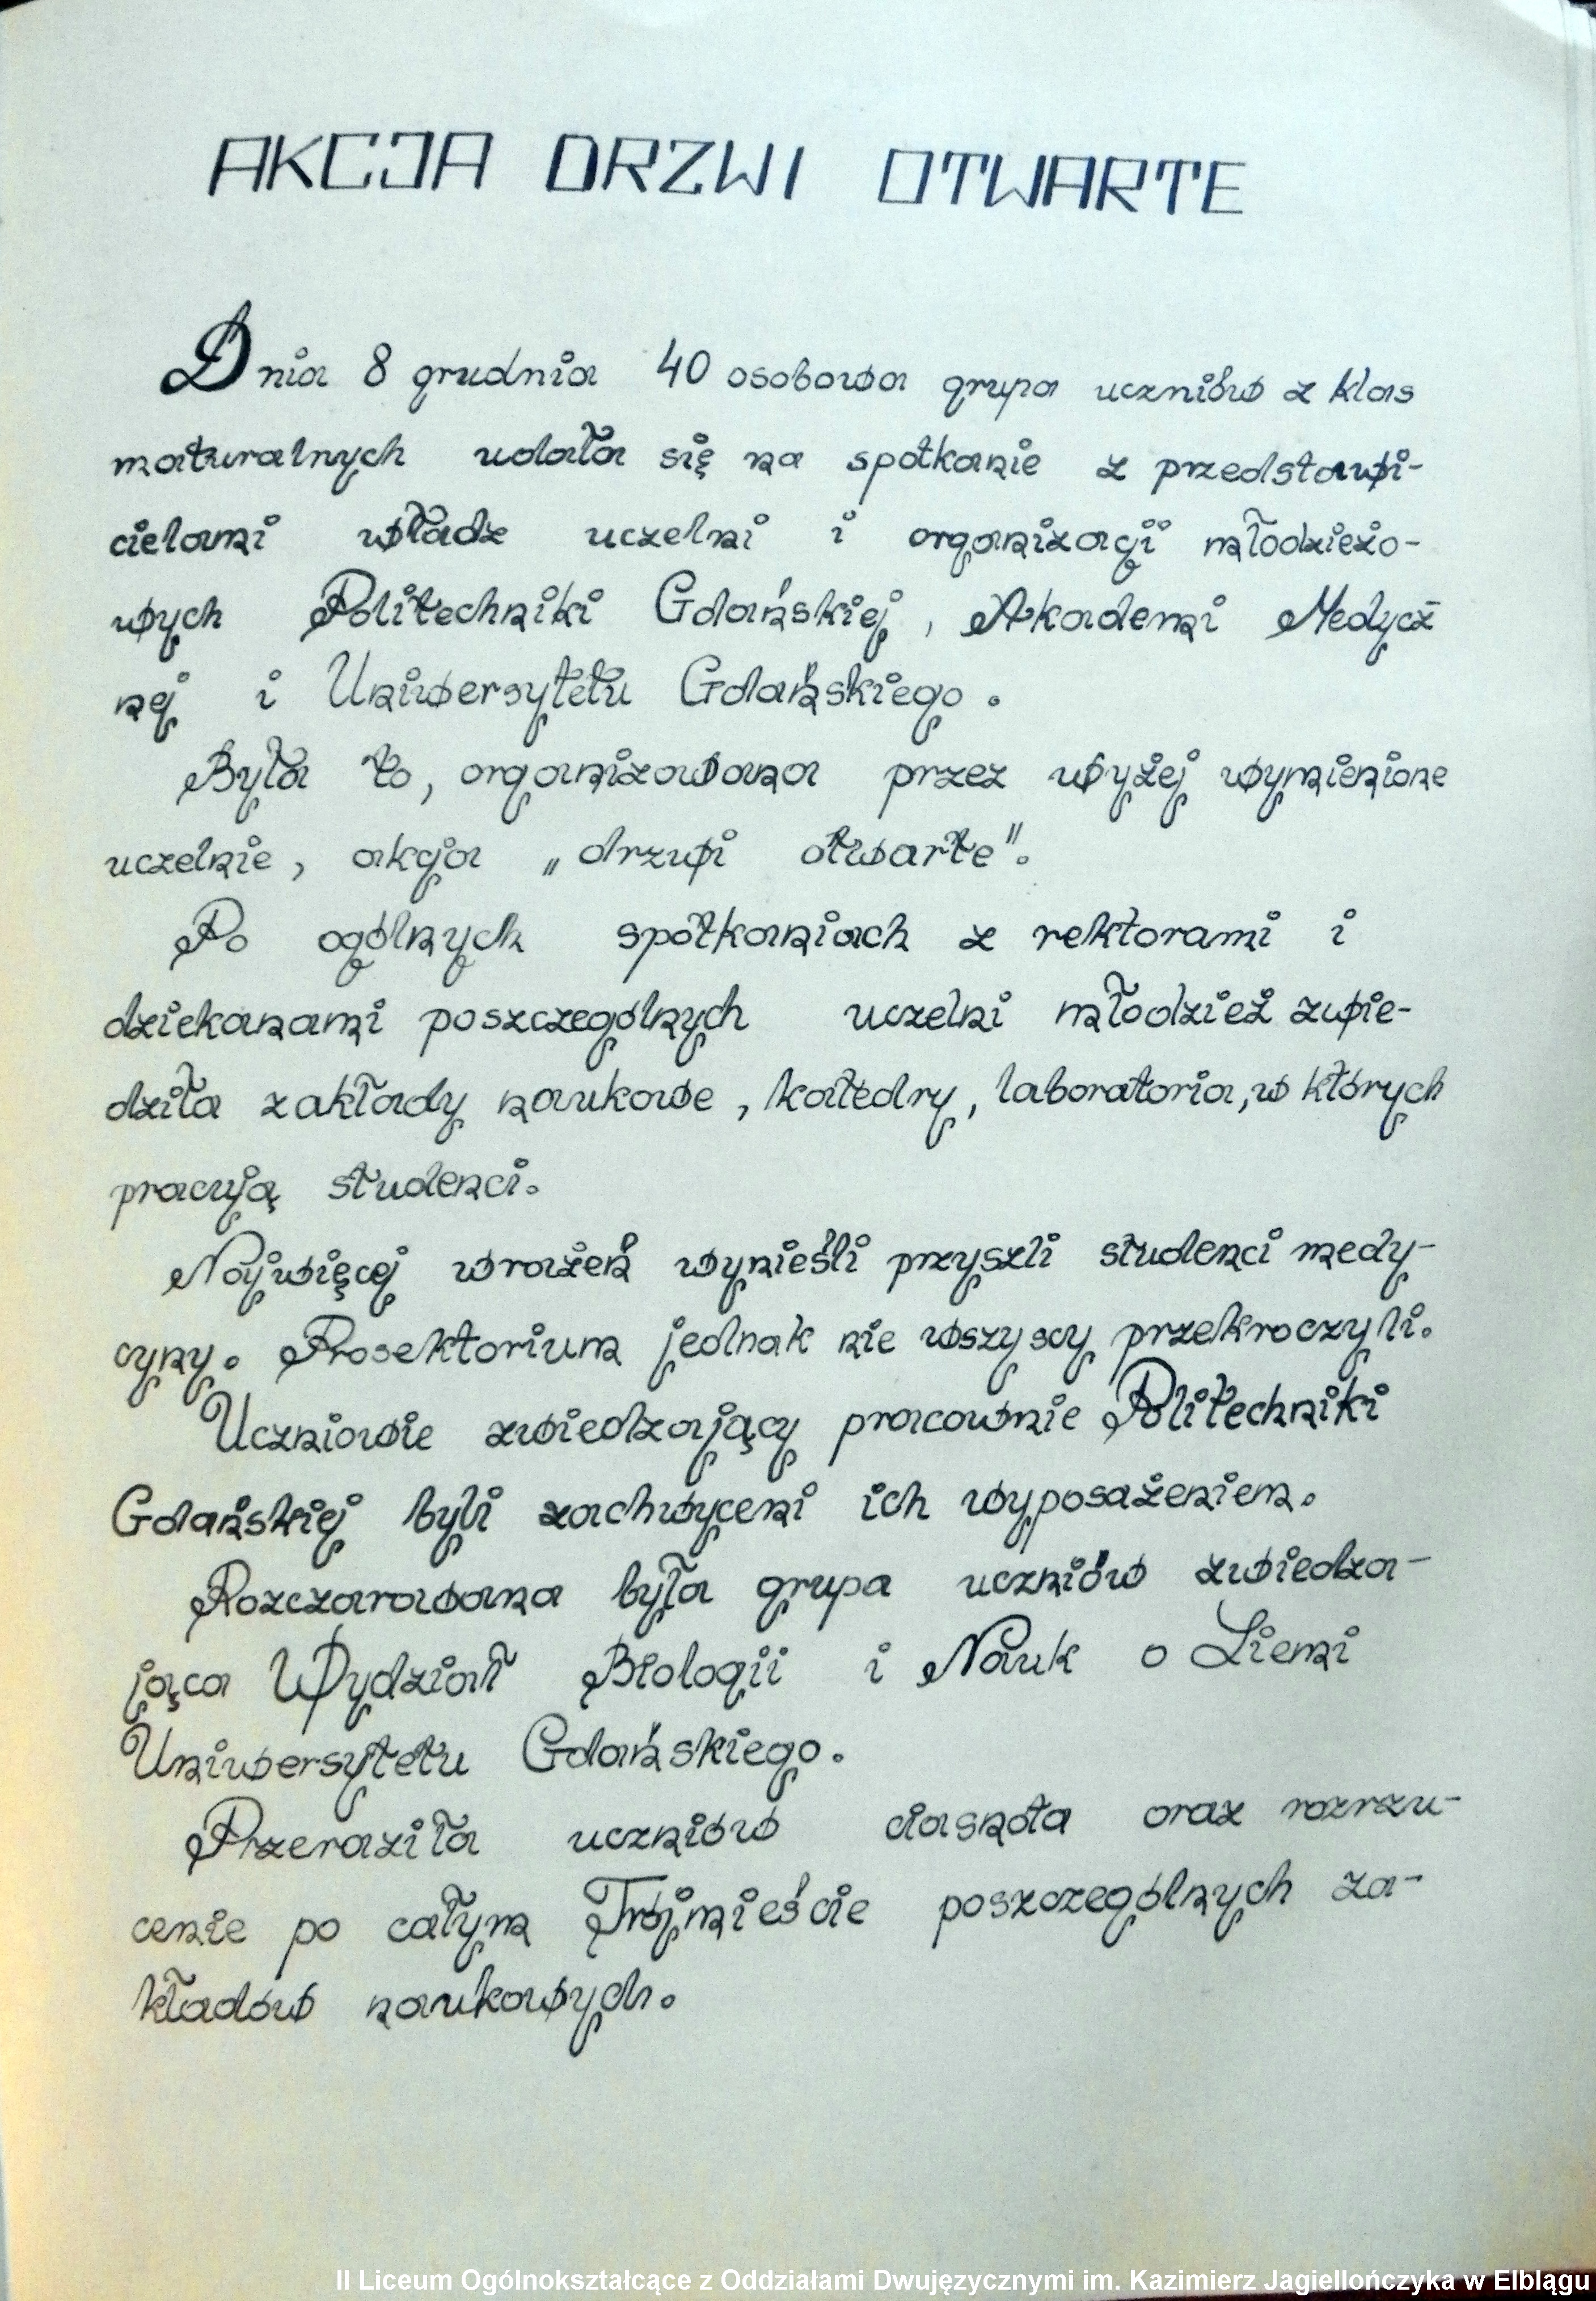 AKCJA DRZWI OTWARTE
Dnia 8 grudnia 40 osobowa grupa uczniów z klas
maturalnych udała się na spotkanie z przedstawi-
cielami władz uczelni i organizacji młodzieżo-
wych Politechniki Gdańskiej, Akademi Medycz-
nej i Uniwersytetu Gdańskiego.
Była to, organizowana przez wyżej wymienione
uczelnie, akcja „drzwi otwarte".
Po ogólnych spotkaniach z rektorami i
dziekanami poszczególnych uczelni młodzież zwie-
dziła zakłady naukowe, katedry, laboratoria, w których
pracują studenci.
Najwięcej wrażeń wynieśli przyszli studenci medy-
cyny. Prosektorium jednak nie wszyscy przekroczyli.
Uczniowie zwiedzający pracownie Politechniki
Gdańskiej byli zachwyceni ich wyposażeniem.
Rozczarowana była grupa uczniów zwiedza-
jąca Wydział Biologii i Nauk o Ziemi
Uniwersytetu Gdańskiego.
Przeraziła uczniów ciasnota oraz rozrzu-
cenie po całym Trójmieście poszczególnych za-
kładów naukowych.
II Liceum Ogólnokształcące z Oddziałami Dwujęzycznymi im. Kazimierz Jagiellończyka w Elblągu